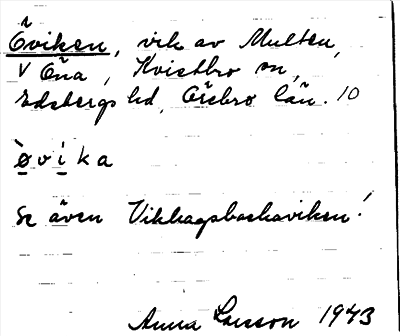 Öviken, vik av Multen,
V Öna, Kvistbro sn,
Edsbergs hd, Örebro län. 10
`ø v i k a
Se även Vikhagsbackaviken!
Anna Larsson 1943